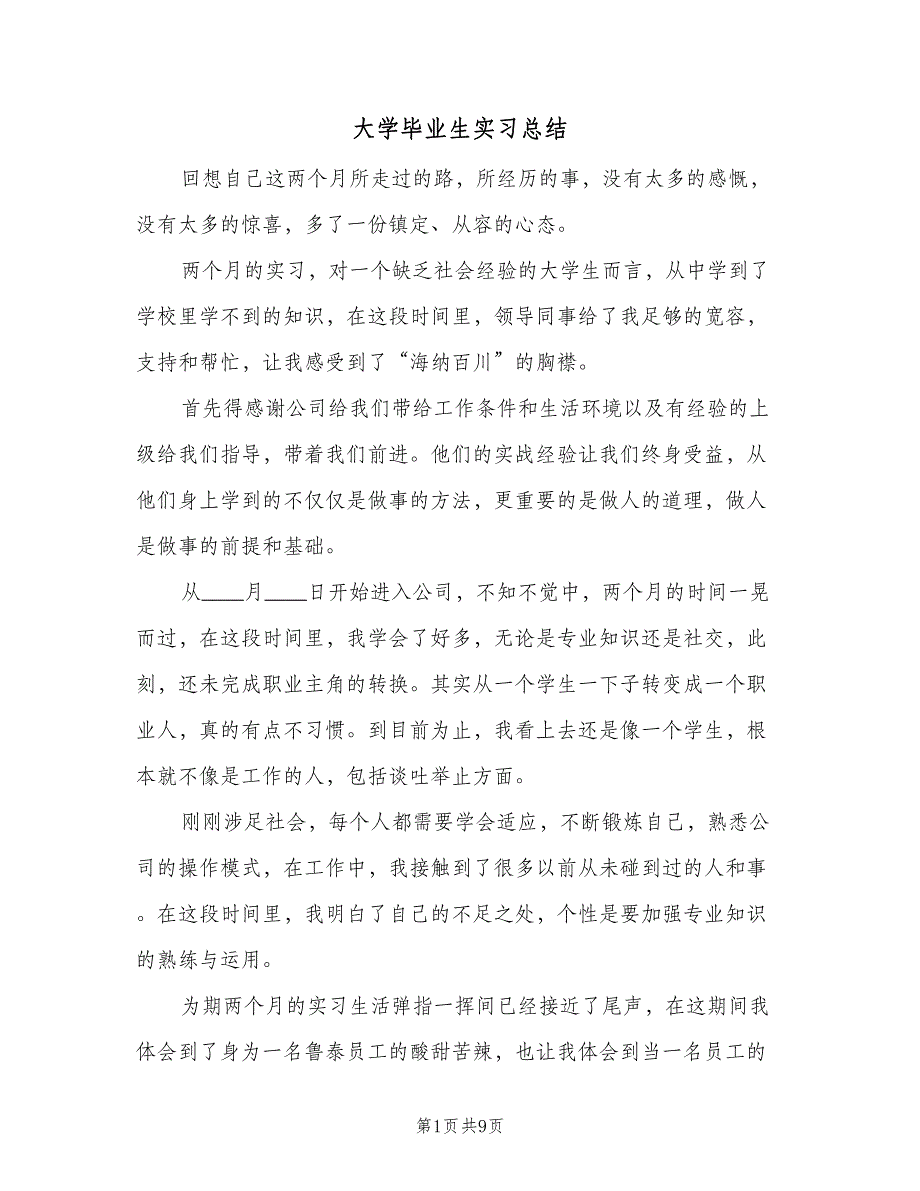 大学毕业生实习总结
回想自己这两个月所走过的路，所经历的事，没有太多的感慨，
没有太多的惊喜，多了一份镇定、从容的心态。
两个月的实习，对一个缺乏社会经验的大学生而言，从中学到了
学校里学不到的知识，在这段时间里，领导同事给了我足够的宽容，
支持和帮忙，让我感受到了“海纳百川”的胸襟。
首先得感谢公司给我们带给工作条件和生活环境以及有经验的上
级给我们指导，带着我们前进。他们的实战经验让我们终身受益，从
他们身上学到的不仅仅是做事的方法，更重要的是做人的道理，做人
是做事的前提和基础。
从____月____日开始进入公司，不知不觉中，两个月的时间一晃
而过，在这段时间里，我学会了好多，无论是专业知识还是社交，此
刻，还未完成职业主角的转换。其实从一个学生一下子转变成一个职
业人，真的有点不习惯。到目前为止，我看上去还是像一个学生，根
本就不像是工作的人，包括谈吐举止方面。
刚刚涉足社会，每个人都需要学会适应，不断锻炼自己，熟悉公
司的操作模式，在工作中，我接触到了很多以前从未碰到过的人和事
。在这段时间里，我明白了自己的不足之处，个性是要加强专业知识
的熟练与运用。
为期两个月的实习生活弹指一挥间已经接近了尾声，在这期间我
体会到了身为一名鲁泰员工的酸甜苦辣，也让我体会到当一名员工的
第1页共9页